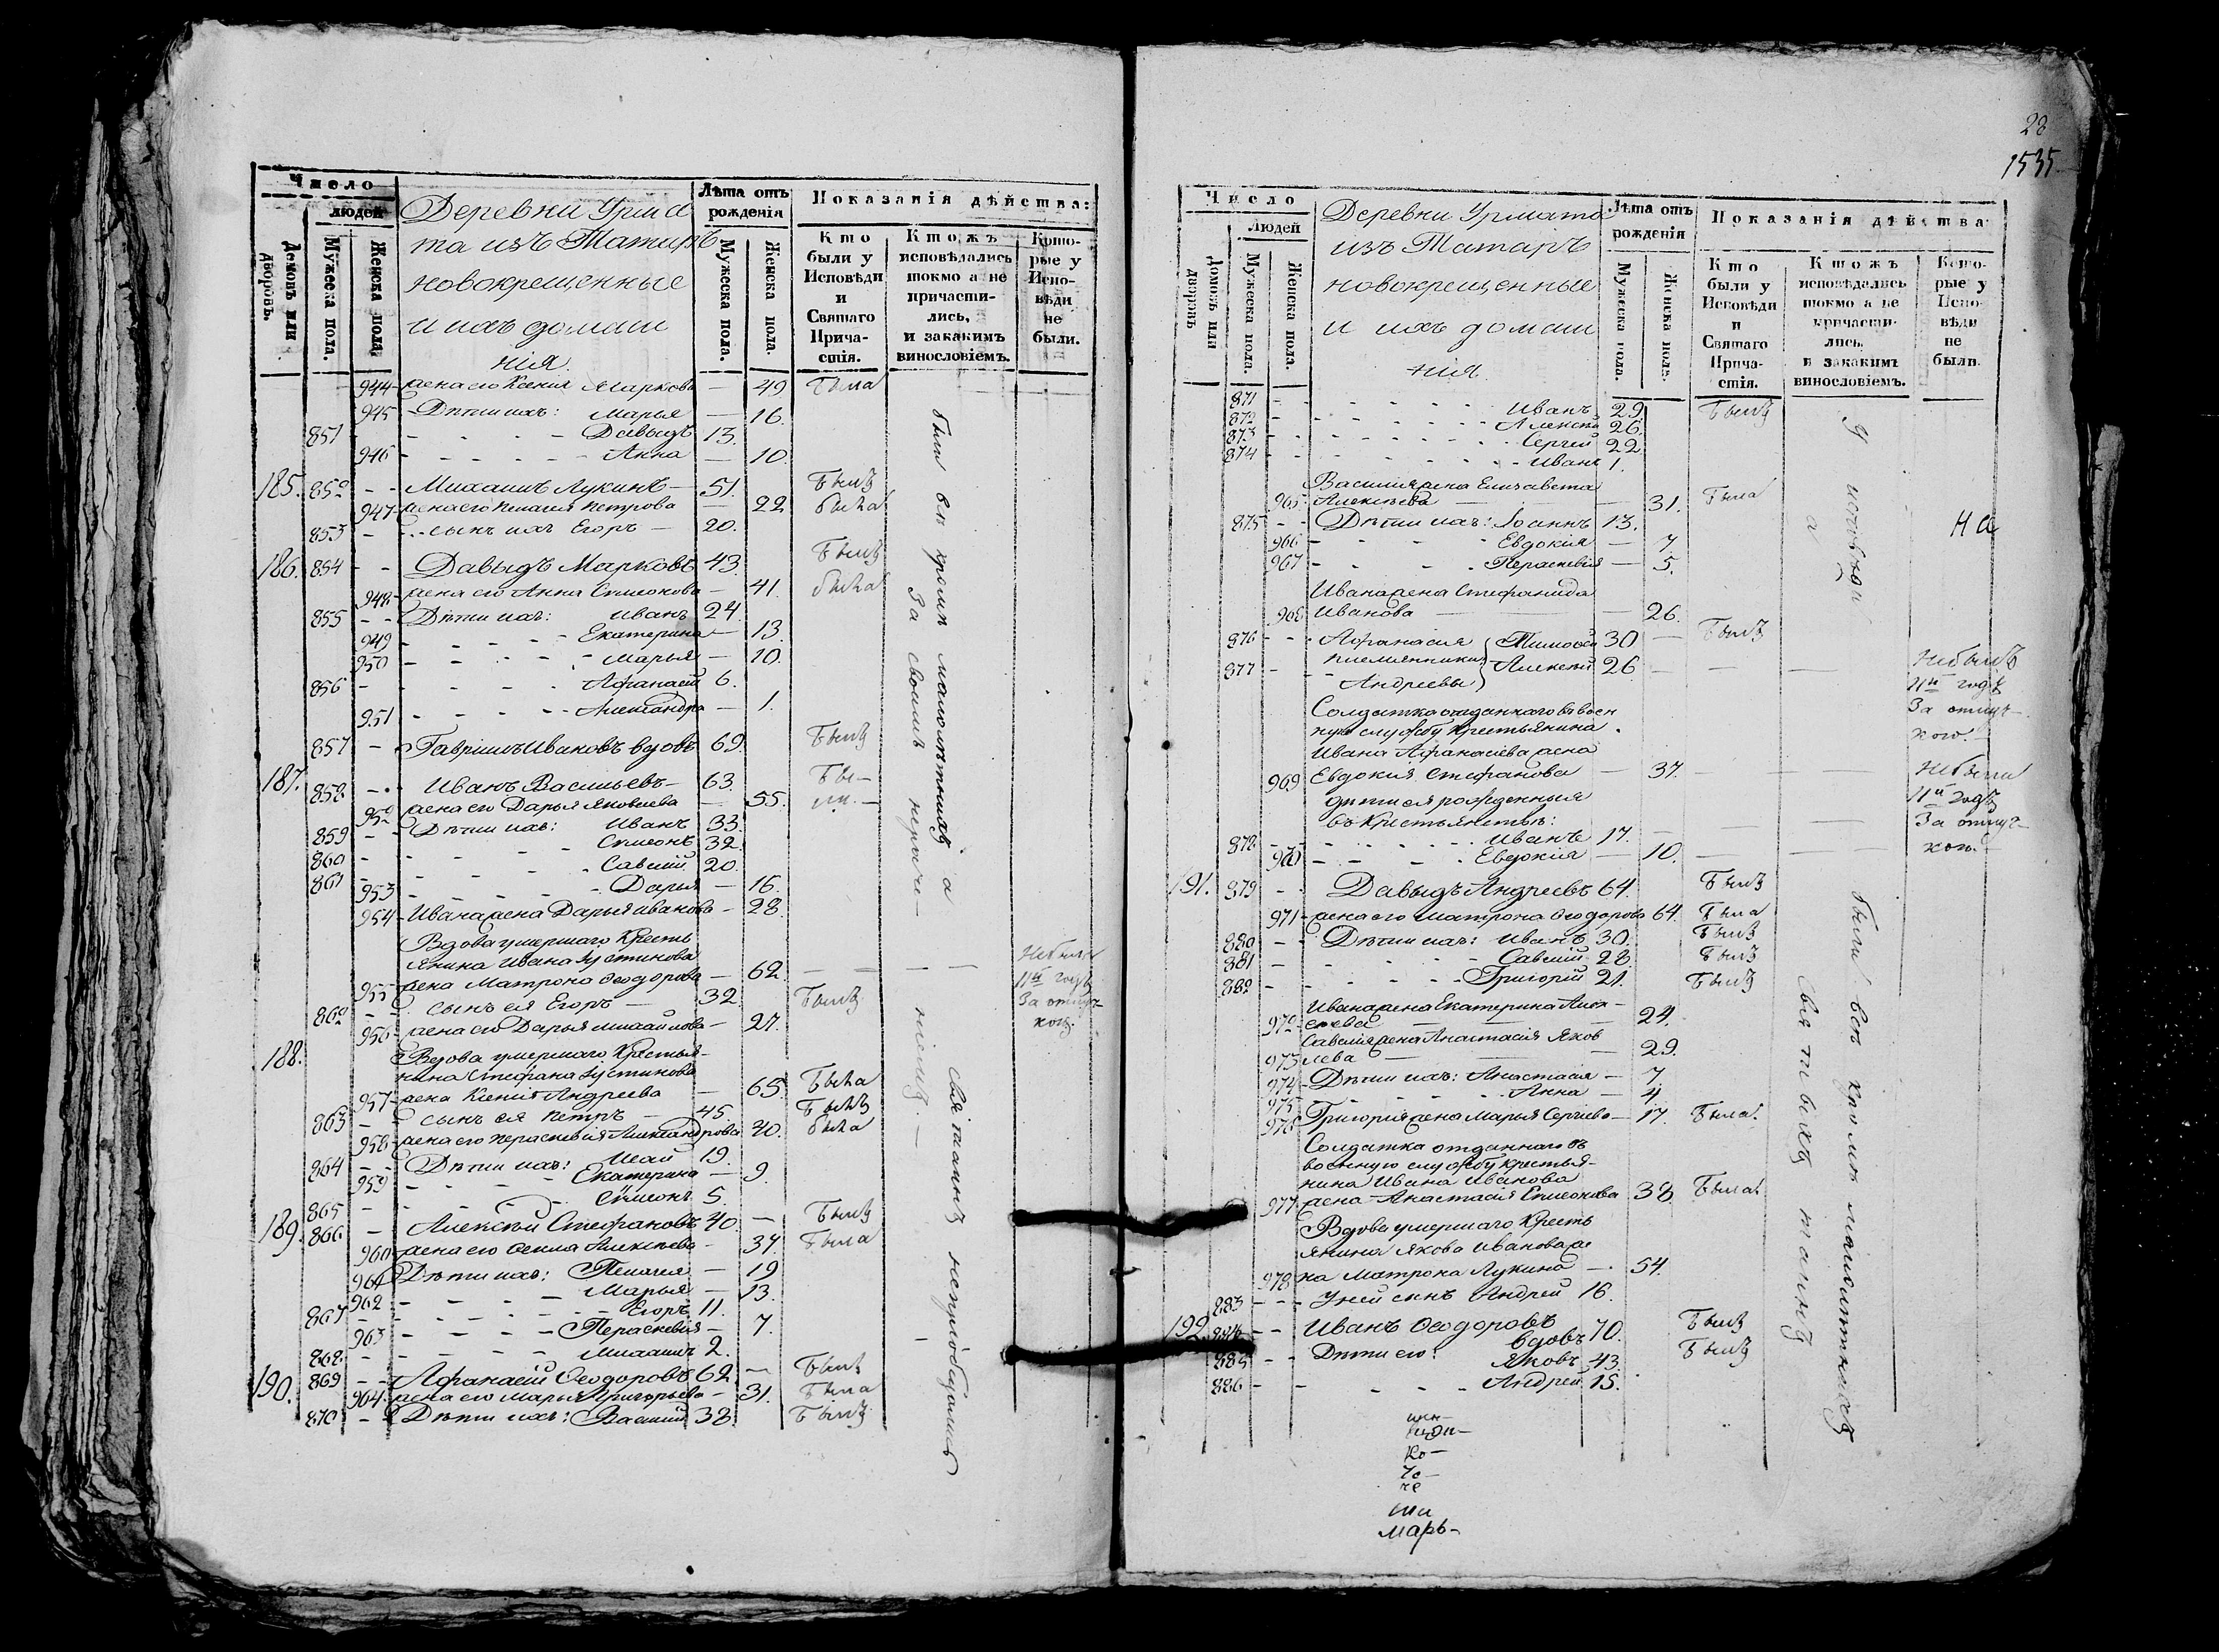 Число
людей
Домовъ или дворовъ.
Мужеска пола.
Женска пола.
Деревни Урма
та изъ Татаръ
новокрещенные
и ихъ домаш
нія.
Лѣта отъ рожденія
Мужеска пола.
Женска пола.
Показанія дѣйства:
Кто были у Исповѣди и Святаго Причастія.
Ктожъ исповѣдались токмо а не причастились, и закакимъ винословіемъ.
Которые у Исповѣди не были.
944 жена его Ксенія Маркова — 49 была
945 Дѣти ихъ: Марья — 16.
851 - - - - Давыдъ 13.
946 - - - - Анна — 10.
185. 852 - - Михаилъ Лукинъ — 51. былъ
947 жена его Пелагія Петрова — 22 была
853 - сынъ ихъ Егоръ — 20.
186. 854 - - Давыдъ Марковъ 43. былъ
948 жена его Анна Симеонова — 41. была
855 - - Дѣти ихъ: Иванъ 24.
949 - - - - Екатерина — 13.
950 - - - - Марья — 10.
856 - - - - Афанасій 6.
951 - - - - Александра — 1.
857 - Гавріилъ Ивановъ вдовъ 69. былъ
187. 858 - - Иванъ Васильевъ — 63. бы-
952 жена его Дарья Яковлева — 55. ли. —
859 - - Дѣти ихъ: Иванъ 33.
860 - - - - Симеонъ 32.
861 - - - - Савелій 20.
953 - - - - Дарья — 16.
954 Ивана жена Дарья Иванова — 28.
Вдова умершаго Кресть
янина Ивана Іустинова
955 жена Матрона Ѳеодорова — 62. — — — Небыла
11й годъ
За отлуч-
кою.
862 - - сынъ ея Егоръ — 32. былъ
956 жена его Дарья Михайлова — 27.
188. Вдова умершаго Крестья-
нина Стефана Іустинова
957 жена Ксенія Андреева — 65. была
863 - - сынъ ея Петръ — 45. былъ
958 жена его Параскевія Александрова 40. была
864 - - Дѣти ихъ: Исай 19.
959 - - - - Екатерина — 9.
865 - - - - Симеонъ 5.
189. 866 - Алексѣй Стефановъ 40. — былъ
960 жена его Ѳекла Алексѣева — 37. была
961 Дѣти ихъ: Пелагея — 19
962 - - - - Марья — 13.
867 - - - - Егоръ 11.
963 - - - - Параскевія — 7.
868 - - - - Михаилъ 2.
190. 869 - - Афанасій Ѳеодоровъ 62. — былъ
964. жена его Марья Григорьева — 31. была
870 - Дѣти ихъ: Василій 38. былъ
были всѣ кромѣ малолѣтнихъ а
За своимъ нераче-
ніемъ. — Святыхъ таинъ непріобщались
28
1535
Число
Людей
Домовъ или дворовъ
Мужеска пола.
Женска пола.
Деревни Урмата
изъ Татаръ
новокрещенные
и ихъ домаш
нія.
Лѣта отъ рожденія
Мужеска пола.
Женска пола.
Показанія дѣйства
Кто были у Исповѣди и Святаго Причастія.
Ктожъ исповѣдались токмо а не причастились, и закакимъ винословіемъ.
Которые у Исповѣди не были.
871 - - - - Иванъ 29. былъ
872 - - - - Алексѣй 26.
873 - - - - Сергей 22
874 - - - - Иванъ 1.
Василія жена Елизавета
965 Алексѣева — 31. была
875 - - Дѣти ихъ: Іоаннъ 13.
966 - - - - Евдокія — 7
967 - - - - Параскевія — 5.
Ивана жена Стефанида
968 Иванова — 26.
876 - - - Афанасія Тимоѳей 30 — былъ
877 - - племянники Алексѣй 26 — — — Небылъ
Андреевы
11й годъ
За отлуч-
кою.
Солдатка отданнаго въ воен
ную службу Крестьянина
Ивана Афанасіева жена
969 Евдокія Стефанова — 37. — — — Небыли
11й годъ
За отлуч-
кою.
дѣти ея рожденныя
въ Крестьянствѣ:
878 - - - - Иванъ 17.
970 - - - - Евдокія — 10.
191. 879 - - Давыдъ Андреевъ 64. былъ
971 жена его Матрона Ѳеодорова 64. была
880 - - Дѣти ихъ: Иванъ 30. былъ
881 - - - - Савелій 28. былъ
882 - - - - Григорій 21. былъ
Ивана жена Екатерина Алек-
972 сѣева — 24.
Савелія жена Анастасія Яков
973 лева — 29.
974 Дѣти ихъ: Анастасія — 7
975 - - - - Анна — 4
976 Григорія жена Марья Сергіева — 17. была.
Солдатка отданнаго въ
военную службу крестья-
нина Ивана Иванова
977 жена Анастасія Симеонова 38. была.
Вдова умершаго Кресть
янина Якова Иванова же
978 на Матрона Лукина — 54.
883 - - - У ней сынъ Андрей 16.
192. 884 - - Иванъ Ѳеодоровъ
вдовъ 70. былъ
885 - - Дѣти его: Яковъ 43. былъ
886 - - - - Андрей 15.
у исповѣди а
на
были всѣ кромѣ малолѣтнихъ
Святыхъ таинъ
Ко-
Че-
Марь-